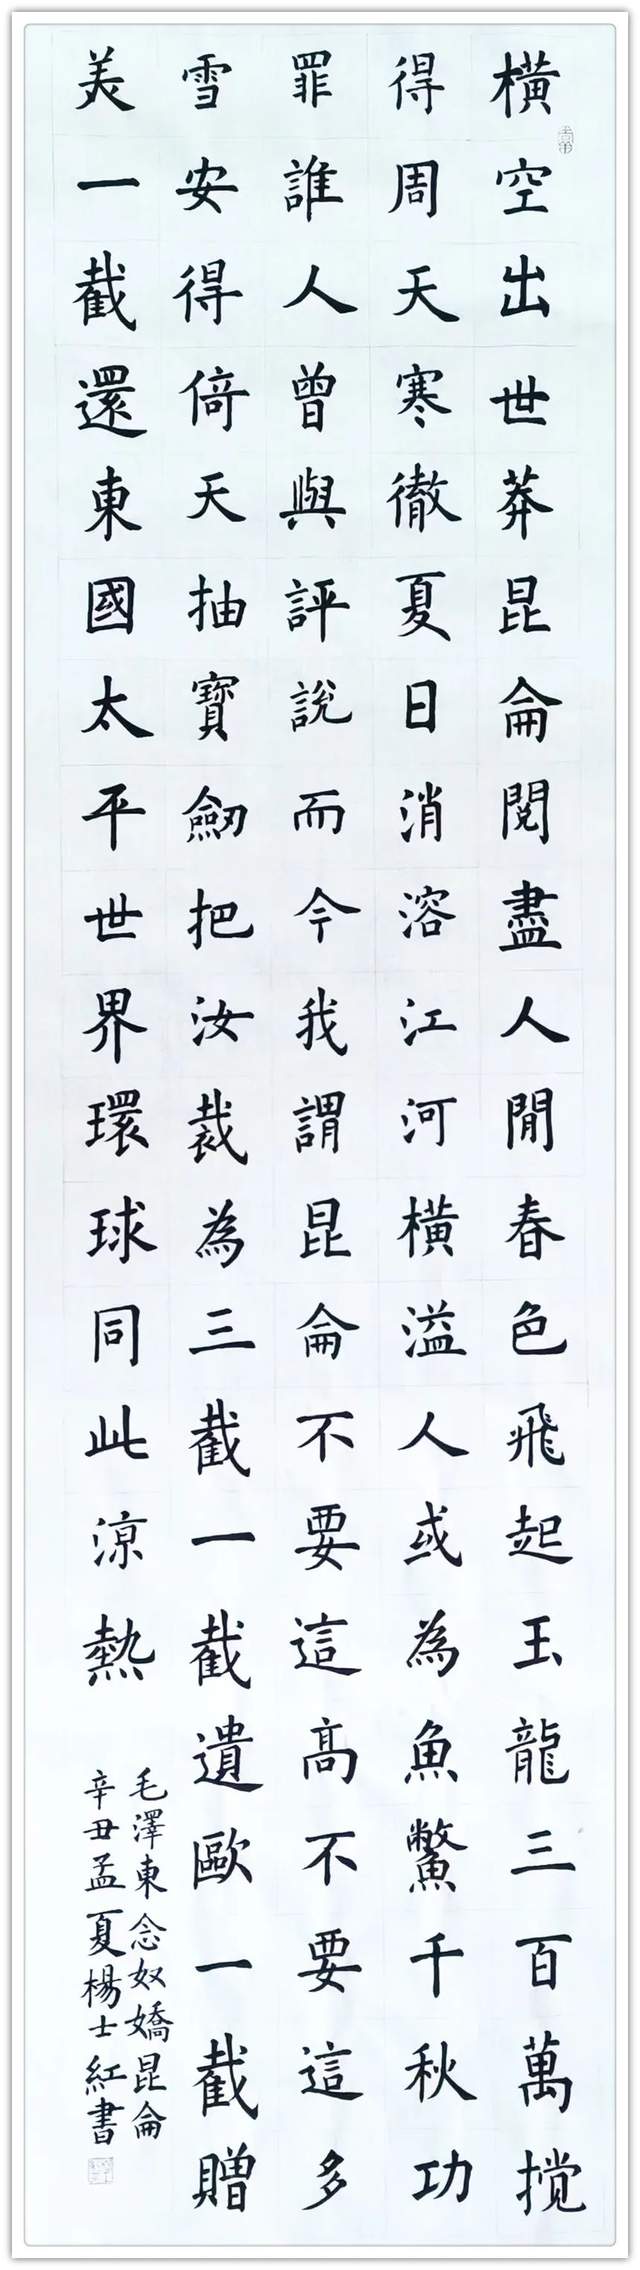 橫空出世莽昆侖閱盡人間春色飛起玉龍三百萬搅
得周天寒徹夏日消溶江河橫溢人或為魚鱉千秋功
罪誰人曾與評說而今我謂昆侖不要這高不要這多
雪安得倚天抽寶劒把汝裁為三截一截遺歐一截贈
美一截還東國太平世界環球同此涼熱
毛澤東念奴嬌昆侖
辛丑孟夏楊士紅書